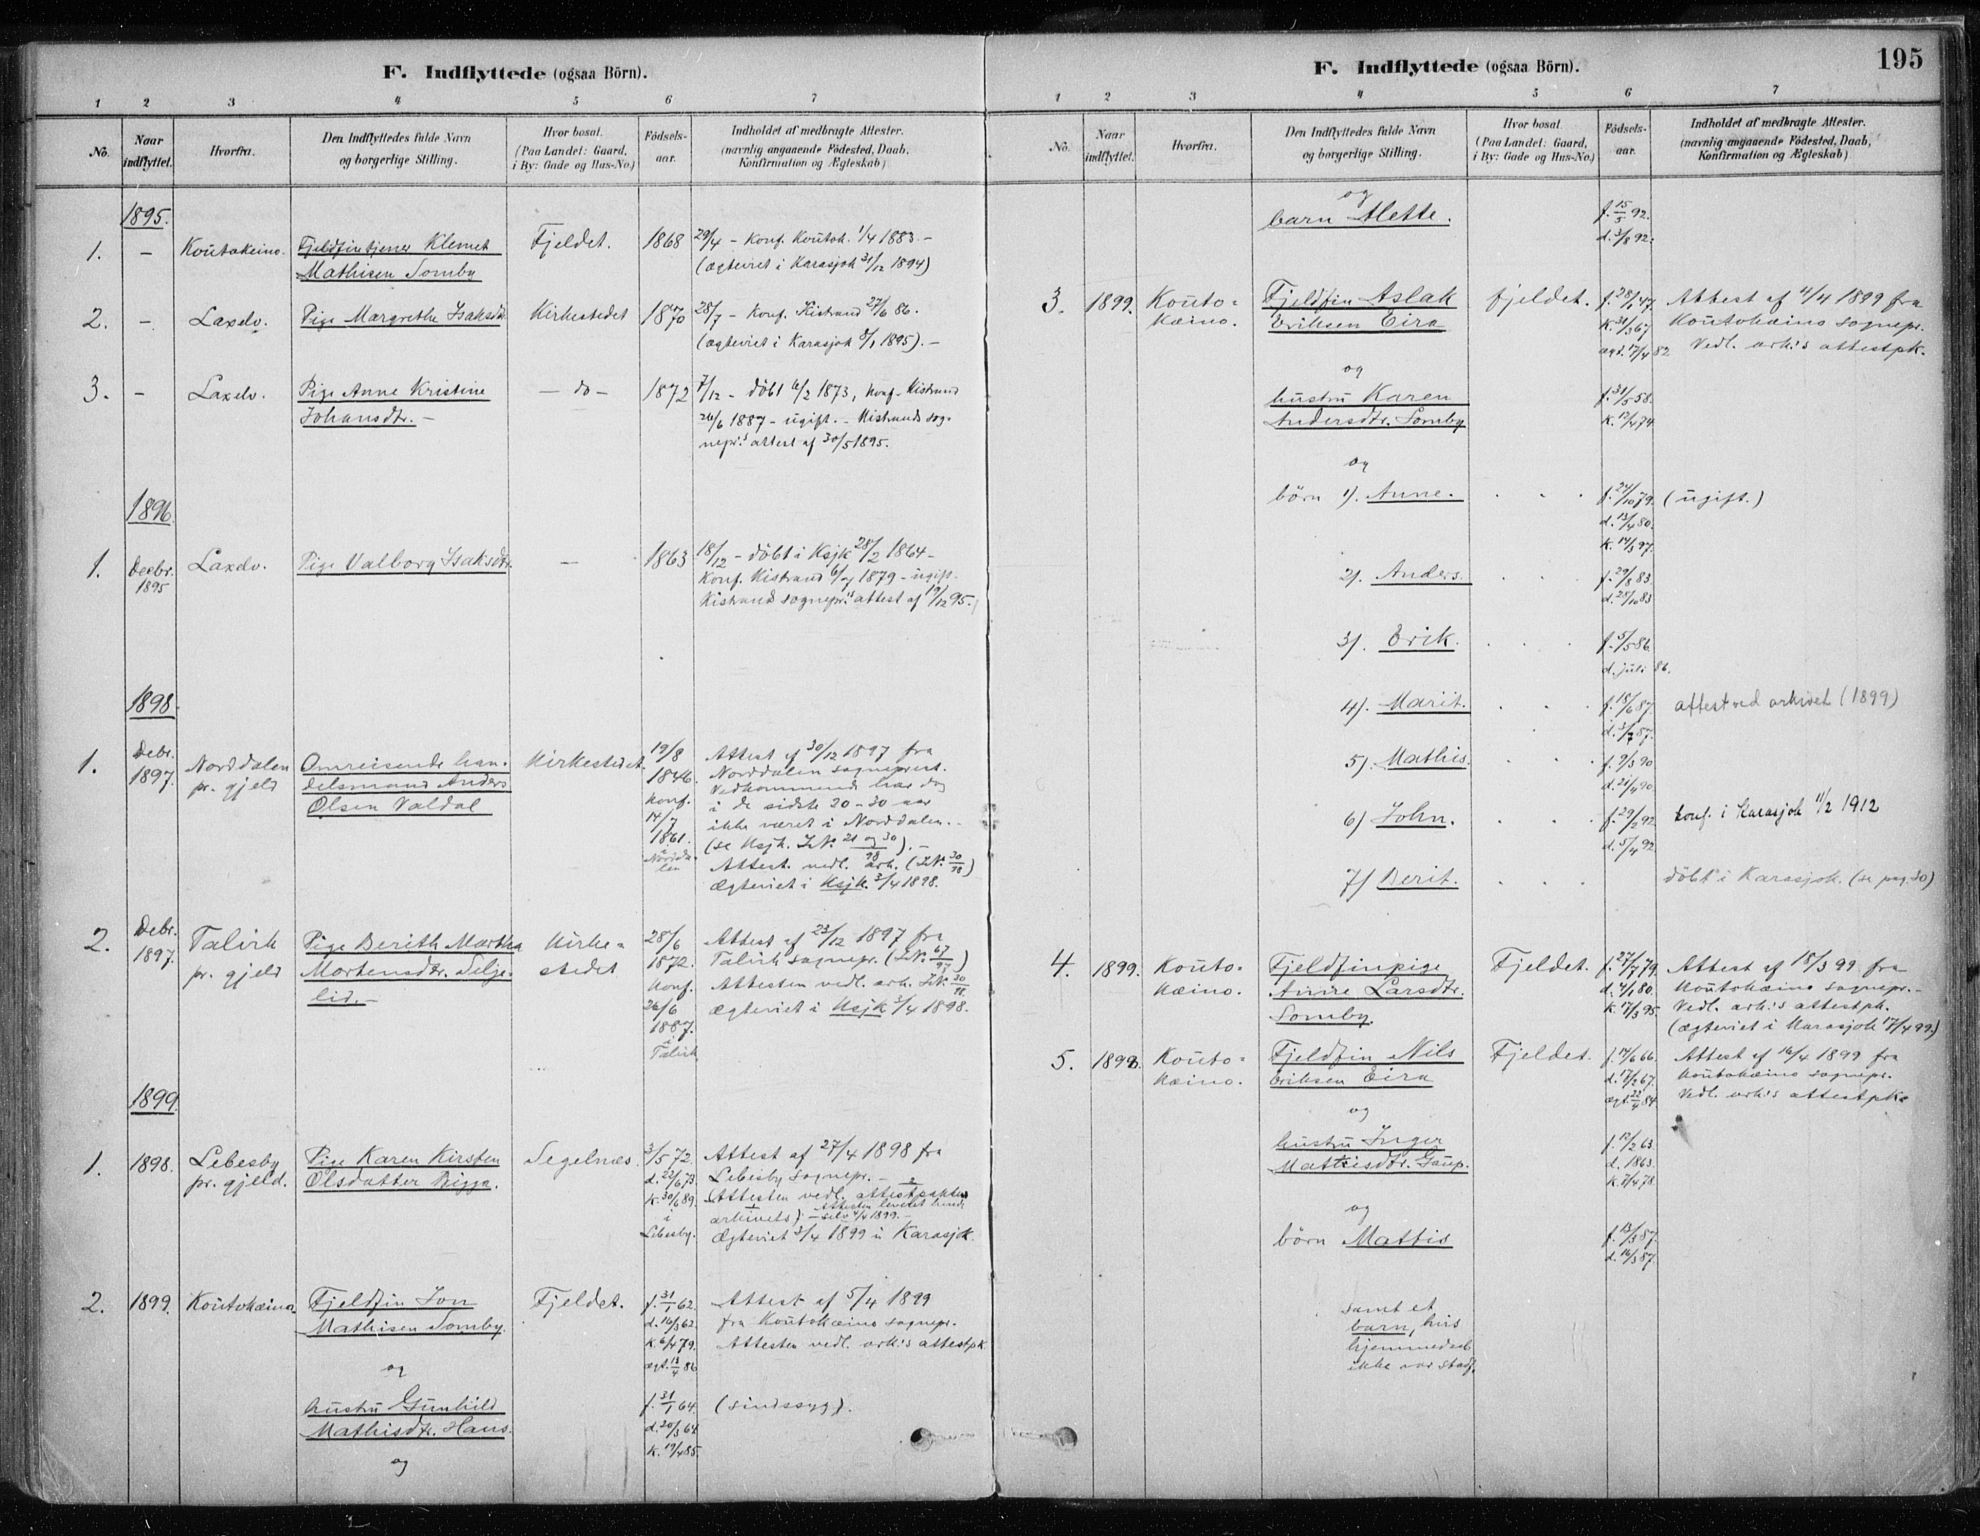 F. Indflyttede (ogsaa Börn).
1 2 3 4 5 6 7
No. Naar indflyttet. Hvorfra. Den Indflyttedes fulde Navn og borgerlige Stilling. Hvor bosat. (Paa Landet: Gaard, i By: Gade og Hus-No.) Fødsels-aar. Indholdet af medbragte Attester. (navnlig angaaende Födested, Daab, Konfirmation og Ægteskab)
1895.
1. — Koutokeino. Fjeldfintjener Klemet Fjeldet. 1868 29/4 – Konf. Koutok. 1/4 1883. –
Mathisen Somby (ægteviet i Karasjok 31/12 1894)
2. — Laxelv. Pige Margrethe Isaksdtr. Kirkestedet 1870 28/7 – Konf. Kistrand 27/6 86.
(ægteviet i Karasjok 8/1 1895). –
3. – Laxelv. Pige Anne Kristine — do — 1872 7/12 – döbt 6/2 1873, Konf. Kistrand
Johansdtr. – 26/6 1887 – ugift. – Kistrands sog-
nepr.s attest af 30/5 1895.
1896.
1. Decbr. 1895 Laxelv. Pige Valborg Isaksdtr. — 1863 18/12 – döbt i Ksjk 28/2 1864 –
Konf. Kistrand 6/7 1879 – ugift.
Kistrands sognepr.s attest af 19/12 95.
1898.
1. Debr. 1897. Norddalen pr. gjeld Omreisende han- Kirkestedet 19/8 Attest af 30/12 1897 fra
delsmand Anders 1846. Norddalen sogneprest.
Olsen Valdal Konf. Vedkommende har dog
14/7 i de sidste 20–30 aar
1861. ikke været i Norddalen. –
i Nordda- (se Ksjk. JN: 21 og 30/98). –
len Attest vedl. ark. (JN: 30/98)
Ægteviet i Ksjk. 3/4 1898.
2. Debr. 1897. Talvik Pige Berith Martha Kirke- 28/6 Attest af 23/12 1897 fra
pr. gjeld Mortensdtr. Selje- stedet 1872. Talvik sognepr. (JN: 67/97)
lid. – Konf. Attesten vedl. ark. JN: 30/98.
26/6 Ægteviet i Ksjk 3/4 1898.
1887.
i Talvik
1899.
1. 1898. Lebesby Pige Karen Kirsten Segelnæs. 3/5 72. Attest af 27/4 1898 fra
pr. gjeld. Olsdatter Bigga. d. 22/6 73. Lebesby sognepr. –
K. 30/6 89. (Attesten vedl. attestpakken
i arkivets) – Attesten leveret hende selv 4/4 1899. –
Lebesby. Ægteviet 3/4 1899 i Karasjok.
2. 1899. Koutokæino. Fjeldfin Jon Fjeldet. f. 31/1 62. Attest af 5/4 1899
Mathisen Somby. d. 16/3 62. fra Koutokæino sognepr.
K. 6/4 79. Attesten vedl. ark:s attestpk
ægt. 13/4 86
og
hustru Gunhild f. 31/1 64. (sindssyg).
Mathisdtr. Hans. d. 20/3 64.
K. 19/4 85.
og
195
F. Indflyttede (ogsaa Börn).
1 2 3 4 5 6 7
No. Naar indflyttet. Hvorfra. Den Indflyttedes fulde Navn og borgerlige Stilling. Hvor bosat. (Paa Landet: Gaard, i By: Gade og Hus-No.) Fødsels-aar. Indholdet af medbragte Attester. (navnlig angaaende Födested, Daab, Konfirmation og Ægteskab)
og
barn Alette. f. 15/5 92.
d. 3/8 92.
3. 1899. Kouto- Fjeldfin Aslak fjeldet. f. 28/1 47. Attest af 11/4 1899 fra
kæino. Eriksen Eira K. 31/3 67 Koutokæino sognepr.
ægt. 17/4 82 Vedl. ark:s attestpk.
og
hustru Karen f. 31/5 58.
Andersdtr. Somby K. 12/4 74.
og
börn 1). Anne. f. 24/10 79. (ugift.)
d. 13/4 80.
K. 14/3 97.
2). Anders. f. 29/8 83.
d. 28/10 83
3). Erik. f. 5/5 86.
d. juli 86.
4). Marit. f. 18/6 87. attest ved arkivet (1899)
d. 3/7 87.
5). Mathis. f. 9/3 90
d. 21/4 90.
6) John. f. 29/2 92. konf. i Karasjok 11/2 1912
d. 5/4 92.
7) Berit. döbt i Karasjok. (se pag. 30)
4. 1899. Kouto- Fjeldfinpige Fjeldet. f. 27/7 79. Attest af 18/3 99 fra
kæino. Anne Larsdtr. d. 4/1 80. Koutokæino sognepr. –
Somby. K. 17/3 95. Vedl. ark:s attestpk.
(Ægteviet i Karasjok 17/4 99.)
5. 1899. Kouto- Fjeldfin Nils Fjeldet. f. 14/6 66. Attest af 16/4 1899 fra
kæino. Eriksen Eira d. 17/2 67. Koutokæino sognepr.
ægt. 22/4 84. Vedl. ark:s attestpk.
og
hustru Inger f. 12/2 63.
Mathisdtr. Gaup. d. 1863.
K. 7/4 78.
og
börn Mattis f. 13/3 87.
d. 16/3 87.
samt et
barn, hvis
hjemmedaab
ikke var stadf.